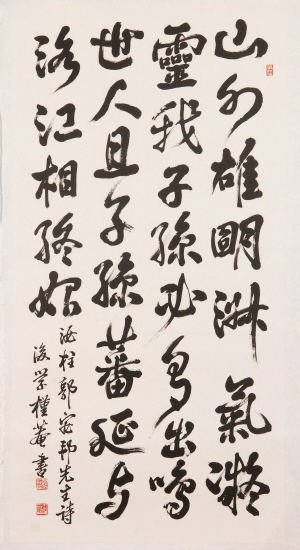 山川雄淑氣凝
靈我子孫必多出鳴
世人且子孫蕃延与
洛江相終始
郭邦先生詩
後學槿菴書